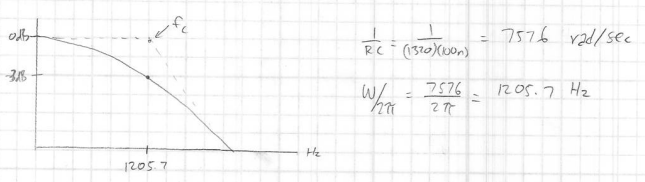 f_c
0db
-3db
Hz
1205.7
1/RC = 1/(1320)(100n) = 7576 rad/sec
W/2π = 7576/2π = 1205.7 Hz